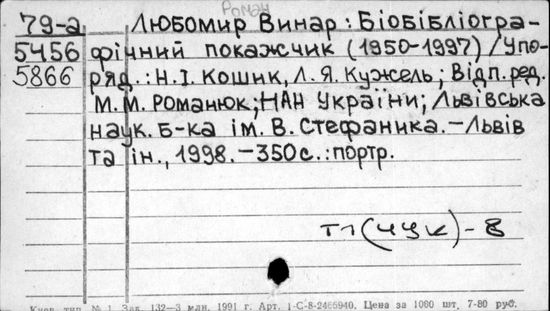 Роман
79-а Любомир Винар: Біобібліогра-
5456 фічний покажчик (1950-1997)/Упо-
5866 ряд.: Н.І. Кошик, Л.Я. Кужель; Відп. ред.
М.М. Романюк; НАН України; Львівська
наук. б-ка ім. В. Стефаника. – Львів
та ін., 1998. – 350с.: портр.
т1(4УК)-8
тип. № 1 Зак. 132—3 млн. 1991 г. Арт. 1-С-8-2466940. Цена за 1000 шт. 7-80 руб.